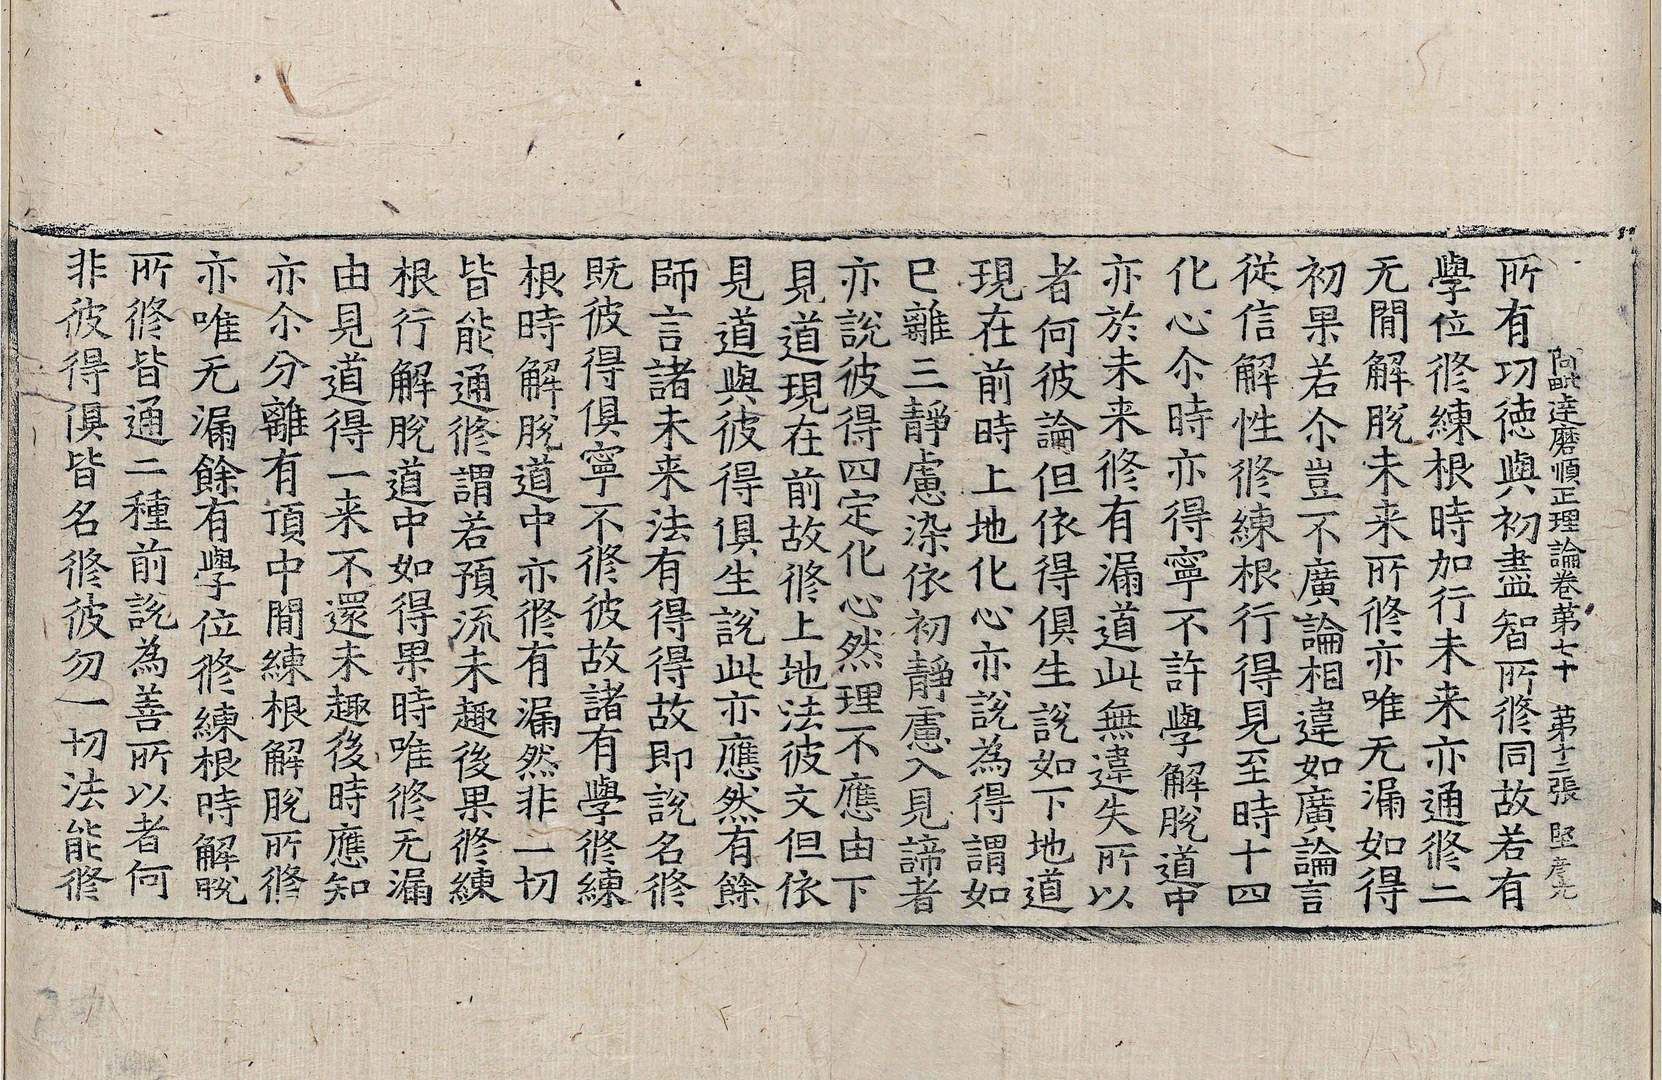 阿毗達磨順正理論卷第七十 第十三張 堅
所有功德與初盡智所修同故若有
學位修練根時加行未来亦通修二
无閒解脫未来所修亦唯无漏如得
初果若尒豈不廣論相違如廣論言
從信解性修練根行得見至時十四
化心尒時亦得寧不許學解脫道中
亦於未来修有漏道此無違失所以
者何彼論但依得俱生說如下地道
現在前時上地化心亦說為得謂如
已離三靜慮染依初靜慮入見諦者
亦說彼得四定化心然理不應由下
見道現在前故修上地法彼文但依
見道與彼得俱生說此亦應然有餘
師言諸未来法有得得故即說名修
既彼得俱寧不修彼故諸有學修練
根時解脫道中亦修有漏然非一切
皆能通修謂若預流未趣後果修練
根行解脫道中如得果時唯修无漏
由見道得一来不還未趣後時應知
亦尒分離有頂中閒練根解脫所修
亦唯无漏餘有學位修練根時解脫
所修皆通二種前說為善所以者何
非彼得俱皆名修彼勿一切法能修